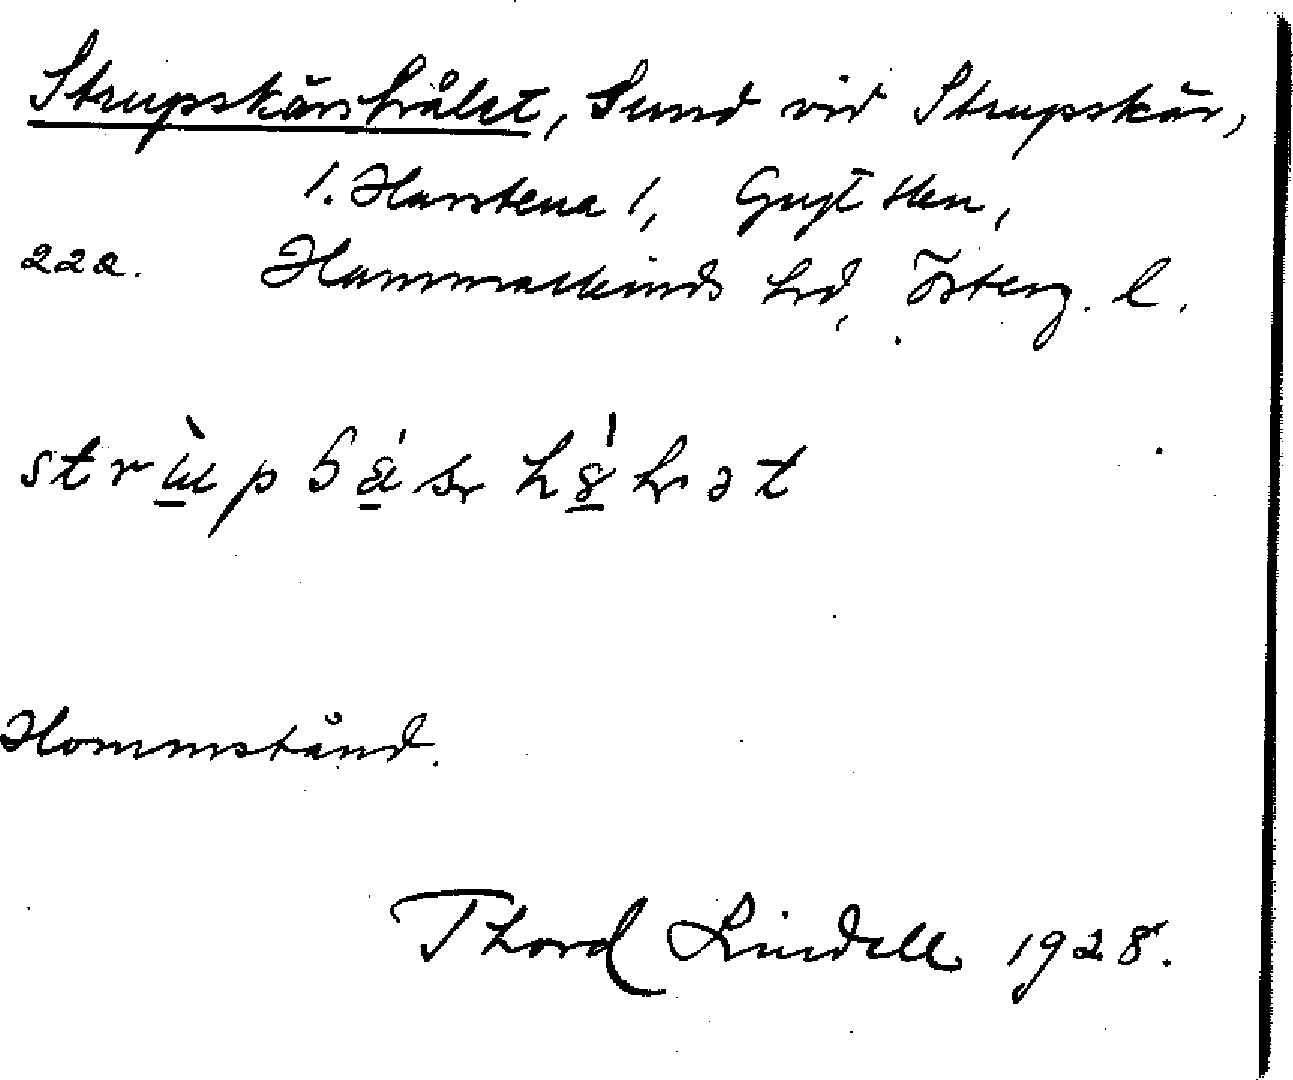 Strupskärshålet, Sund vid Strupskär,
1. Harstena 1, Gryt sn,
22a. Hammarkinds hd, Österg. l.
Hommstånd.
Thord Lindell 1928.